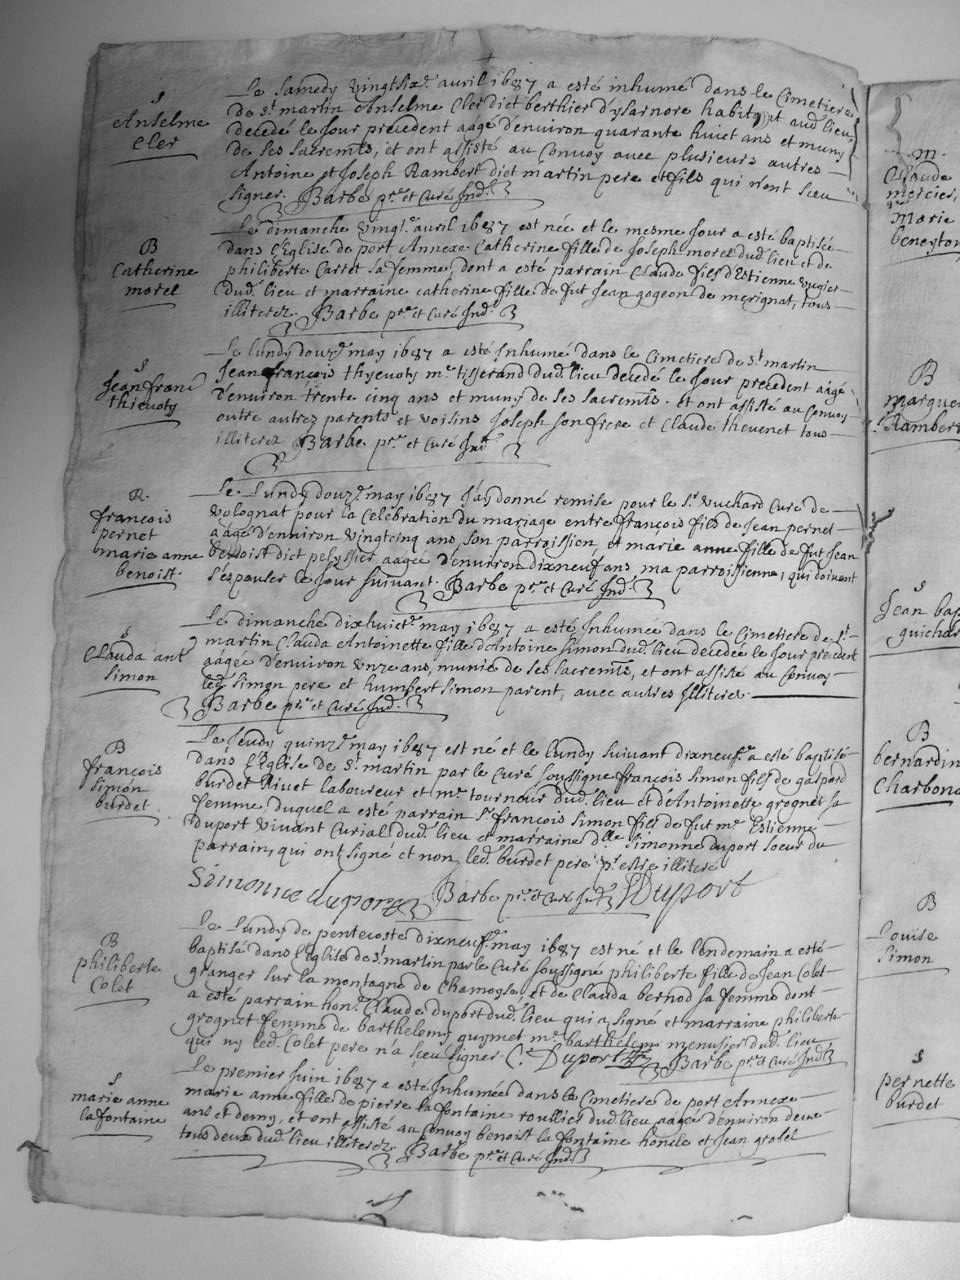 S
Anselme
Cler
Le samedy vingtsix.e avril 1687 a esté inhumé dans le Cimetiere
de S.t martin Anselme Cler dict berthier d'ysarnore habit.
decedé le Jour precedent aagé d'environ quarante huict ans et muny
de ses sacrem.ts, et ont assisté au Convoy avec plusieurs autres
Antoine et Joseph Rambert dict martin pere et fils qui n'ont sceu
signer. Barbe p.re et Curé Ind.
B
Catherine
morel
Le dimanche avril 1687 est née et le mesme Jour a esté baptisée
dans l'Eglise de port Annexe Catherine fille de Joseph morel dud. lieu et de
philiberte Carret sa femme, dont a esté parrain Claude fils d'Estienne
dud. lieu et marraine catherine fille de fut Jean gogeon de merignat, tous
illiterez. Barbe p.re et Curé Ind.
S
Jean franc.
thievoty
Le lundy douz.e may 1687 a esté Inhumé dans le Cimetiere de S.t martin
Jean françois thyevoty m.e tisserand dud. lieu decedé le Jour precedent aagé
d'environ trente cinq ans et muny de ses sacrem.ts. et ont assisté au Convoy
outre autres parents et voisins Joseph son frere et Claude thevenet tous
illiterez Barbe p.re et Curé Ind.
R.
françois
pernet
marie anne
benoist.
Le Lundy douz.e may 1687 J'ay donné remise pour le S.r vuchard Curé de
volognat pour la Celebration du mariage entre françois fils de Jean pernet
aagé d'environ vingtcinq ans, son parroissien, et marie anne fille de fut Jean
benoist dict pelyssier aagée d'environ dixneuf ans ma parroissienne, qui doivent
s'espouser le Jour suivant. Barbe p.re et Curé Ind.
S
Clauda ant.
Simon
Le dimanche dixhuict.e may 1687 a esté Inhumée dans le Cimetiere de S.t
martin Clauda Antoinette fille d'Antoine Simon dud. lieu decedée le Jour precedent
aagée d'environ unze ans, munie de ses sacrem.ts, et ont assisté au Convoy
led. Simon pere et humbert Simon parent, avec autres Illiterez.
Barbe p.re et Curé Ind.
B
françois
simon
burdet
Le Jeudy quinz.e may 1687 est né et le lundy suivant dixneuf.e a esté baptisé
dans l'Eglise de S.t martin par le Curé soussigné françois Simon fils de gaspard
burdet Rivet laboureur et m.e tourneur dud. lieu et d'Antoinette grognet sa
femme duquel a esté parrain S.r françois Simon fils de fut m.e Estienne
Duport vivant Curial dud. lieu et marraine d.lle Simonne duport soeur du
parrain, qui ont signé et non led. burdet pere p.r estre illiteré
Simonne duport Barbe p.re et Curé Ind. Duport
B
philiberte
Colet
Le Lundy de pentecoste dixneuf.e may 1687 est né et le lendemain a esté
baptisé dans l'Eglise de S.t martin par le Curé soussigné philiberte fille de Jean Colet
granger sur la montagne de Chamoyse, et de Clauda bernod sa femme dont
a esté parrain hon. Claude duport dud. lieu qui a signé et marraine philiberte
grognet femme de barthelemy guymet m.e menusier dud. lieu
qui ny led. Colet pere n'a sceu signer. C. Duport Barbe p.re et Curé Ind.
S
marie anne
la fontaine
Le premier Juin 1687 a esté Inhumée dans le Cimetiere de port Annexe
marie anne fille de pierre la fontaine roullier dud. lieu aagée d'environ deux
ans et demy, et ont assisté au Convoy benoist la fontaine et Jean grolet
tous deux dud. lieu illiterez. Barbe p.re et Curé Ind.
m.
Claude
mercier,
marie
beneyton
B
Rambert
S
Jean bap
guichar
B
bernardin
Charbon
B
Louise
Simon
S
pernette
burdet